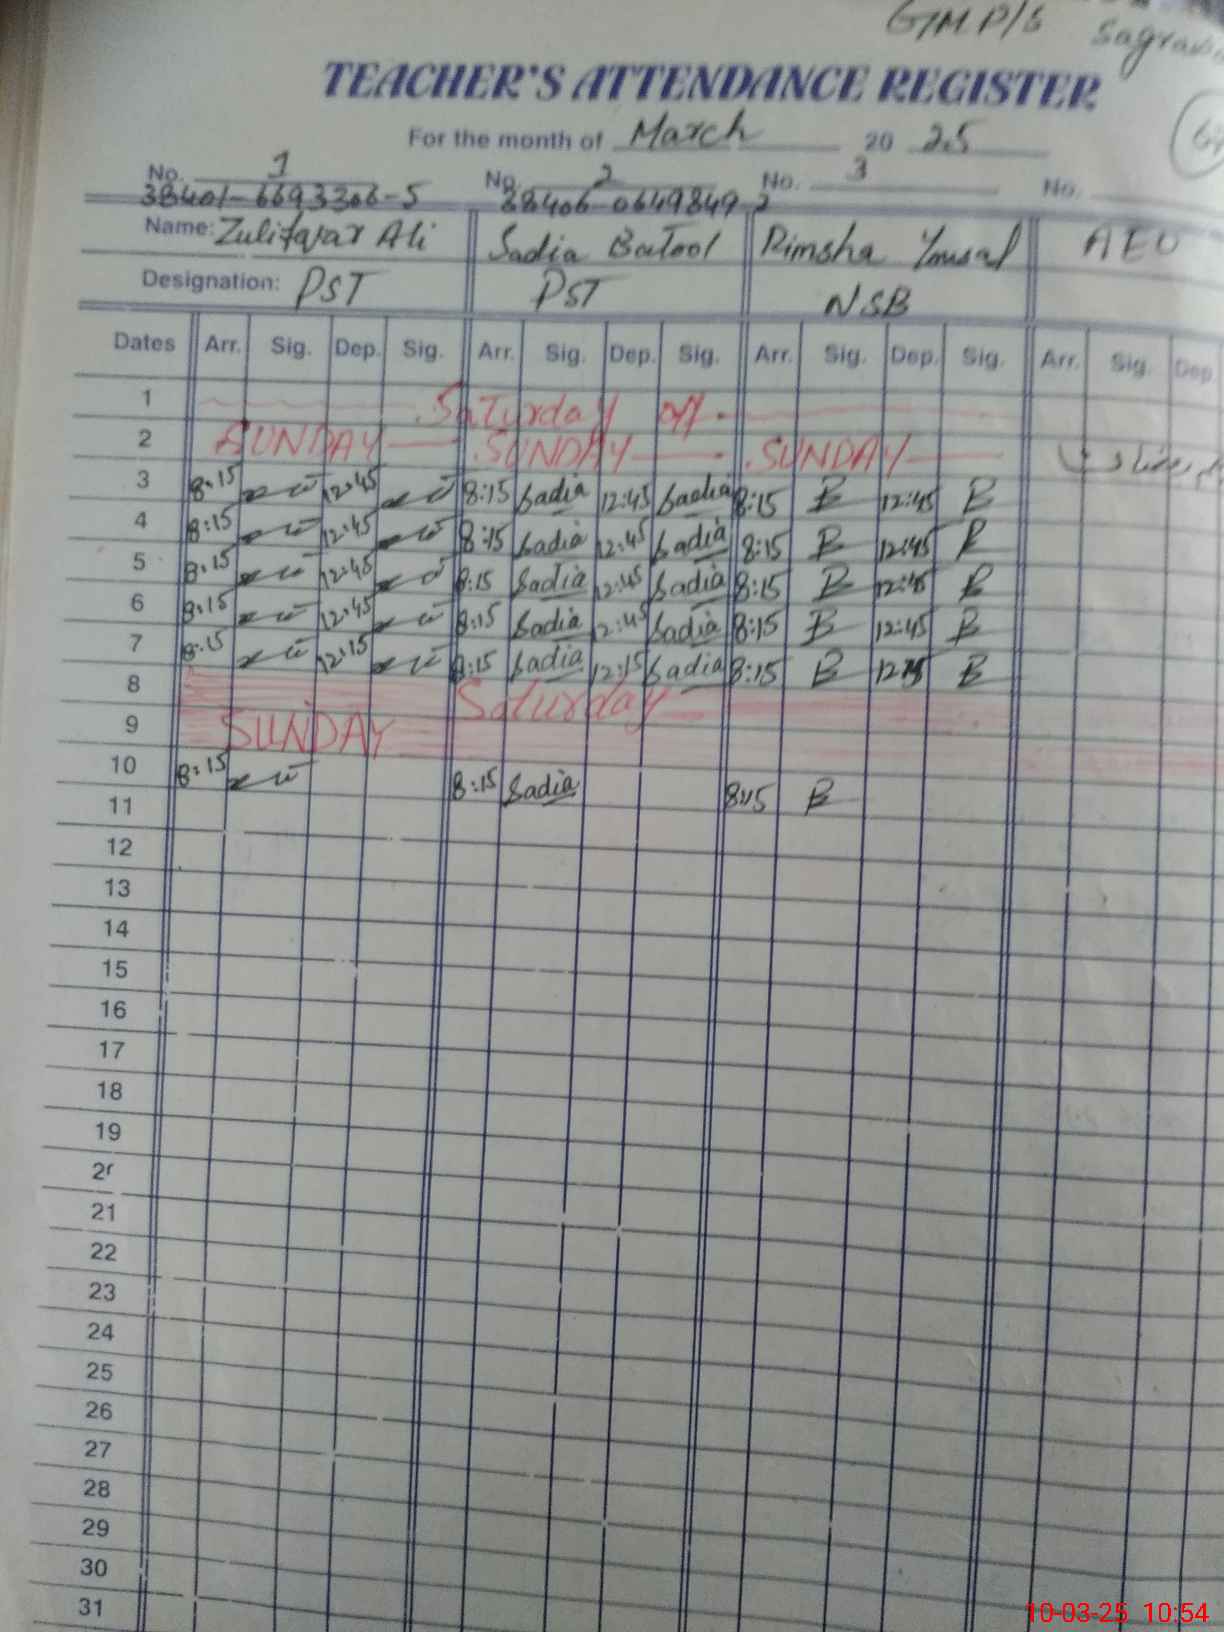 GMP/S
TEACHER'S ATTENDANCE REGISTER
For the month of March 20 25
No. 1 No. 2 No. 3 No.
38401-6693306-5 38406-0649849-2
Name: Zulifaqar Ali Sadia Batool Rimsha Yousaf AEO
Designation: PST PST NSB
Dates Arr. Sig. Dep. Sig. Arr. Sig. Dep. Sig. Arr. Sig. Dep. Sig. Arr. Sig. Dep.
1 Saturday off.
2 SUNDAY SUNDAY SUNDAY
3 8:15 12:45 8:15 Sadia 12:45 Sadia 8:15 12:45
4 8:15 12:45 8:15 Sadia 12:45 Sadia 8:15 12:45
5 8:15 12:45 8:15 Sadia 12:45 Sadia 8:15 12:45
6 8:15 12:45 8:15 Sadia 12:45 Sadia 8:15 12:45
7 8:15 12:15 8:15 Sadia 12:15 Sadia 8:15 12:15
8 Saturday
9 SUNDAY
10 8:15 8:15 Sadia 8:15
11
12
13
14
15
16
17
18
19
21
22
23
24
25
26
27
28
29
30
31
10-03-25 10:54